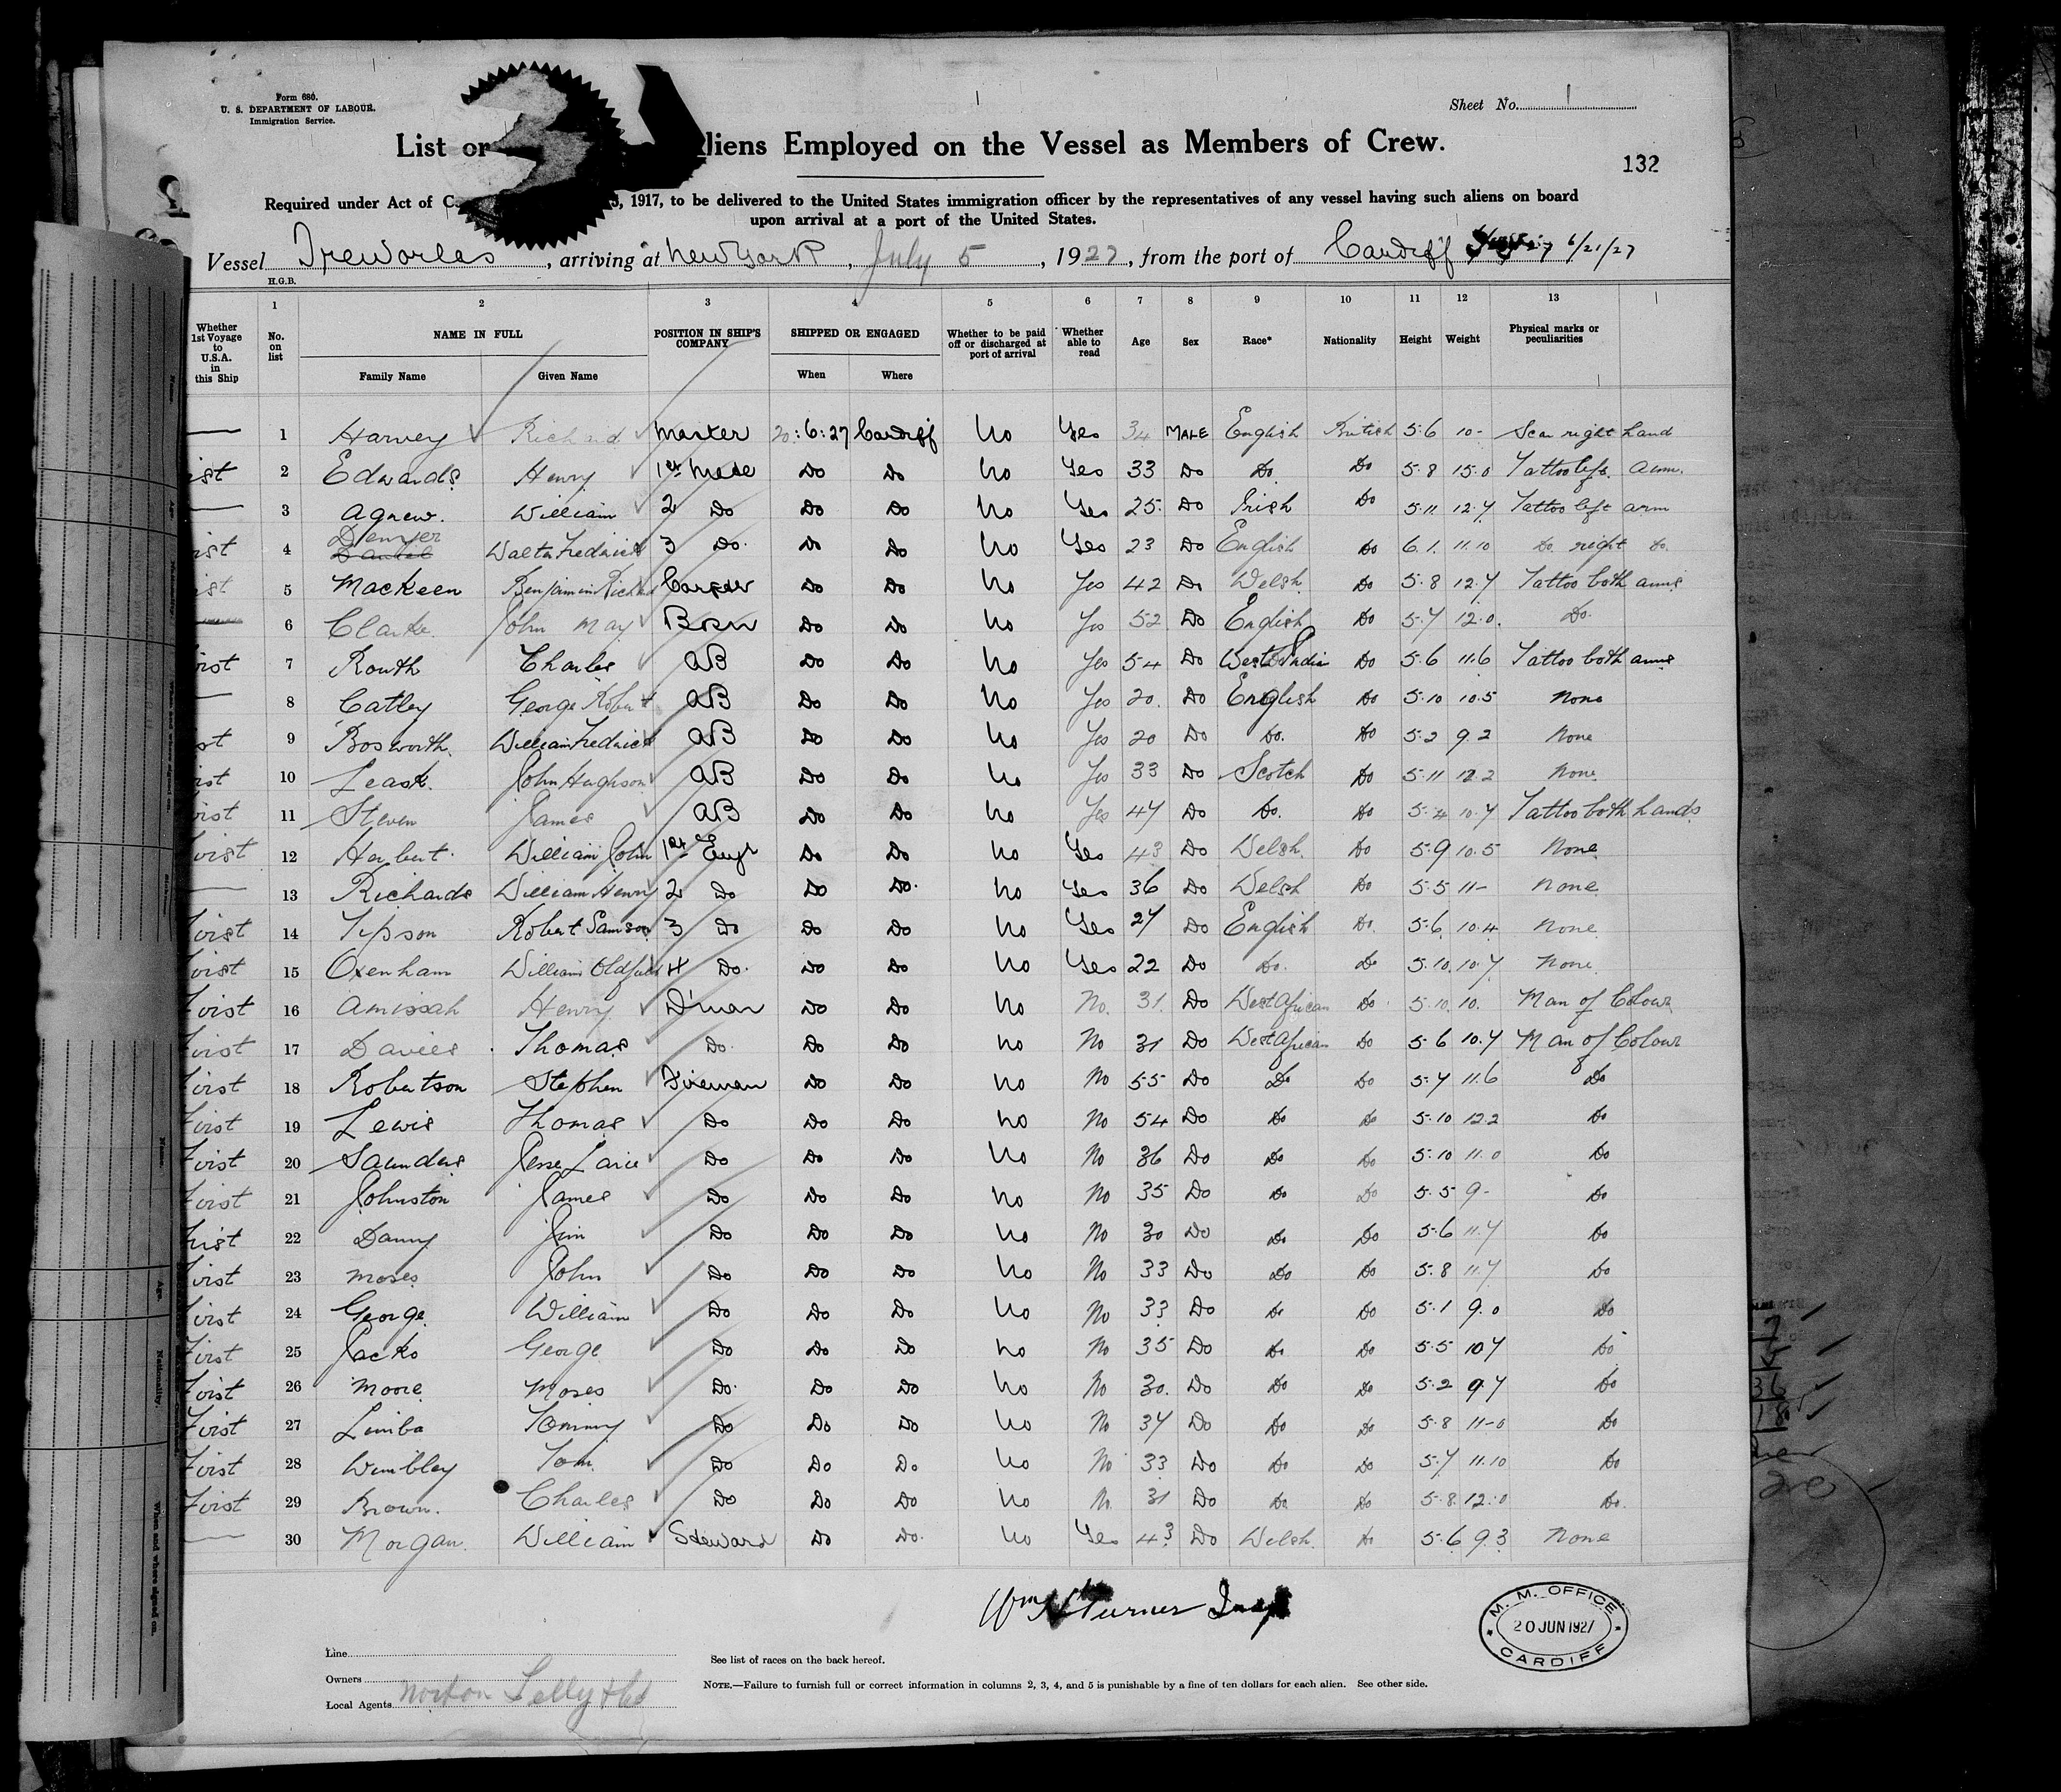 Form 680.
U. S. DEPARTMENT OF LABOUR.
Immigration Service.
Sheet No. 1
List or liens Employed on the Vessel as Members of Crew.
132
Required under Act of C 5, 1917, to be delivered to the United States immigration officer by the representatives of any vessel having such aliens on board
upon arrival at a port of the United States.
Vessel Treworlas, arriving at New York, July 5, 1927, from the port of Cardiff 6/21/27
H.G.B.
1 2 3 4 5 6 7 8 9 10 11 12 13
Whether 1st Voyage to U.S.A. in this Ship No. on list NAME IN FULL POSITION IN SHIP'S COMPANY SHIPPED OR ENGAGED Whether to be paid off or discharged at port of arrival Whether able to read Age Sex Race* Nationality Height Weight Physical marks or peculiarities
Family Name Given Name When Where
— 1 Harvey Richard Master 20:6:27 Cardiff No Yes 34 MALE English British 5.6 10- Scar right hand
ist 2 Edwards Henry 1st Mate Do Do No Yes 33 Do Do Do 5.8 15.0 Tattoo left arm.
— 3 Agnew. William 2 Do Do Do No Yes 25 Do Irish Do 5.11 12.7 Tattoo left arm
irst 4 Denyer Walter Fredrick 3 Do. Do Do No Yes 23 Do English Do 6.1. 11.10 Do. right Do.
ist 5 Mackeen Benjamin Richard Do Do No Yes 42 Do Welsh Do 5.8 12.7 Tattoo both arms
— 6 Clarke John May Bosn Do Do No Yes 52 Do English Do 5.7 12.0. Do.
irst 7 Routh Charles AB Do Do No Yes 54 Do West India Do 5.6 11.6 Tattoo both arms
— 8 Catley George Robert AB Do Do No Yes 20. Do English Do 5.10 10.5 None
st 9 Bosworth. William Fredrick AB Do Do No Yes 20 Do Do. Do 5.2 9.2 None
irst 10 Leask. John Hughson AB Do Do No Yes 33 Do Scotch Do 5.11 12.2 None.
irst 11 Steven James AB Do Do No Yes 47 Do Do. Do 5.4 10.7 Tattoo both hands
First 12 Herbert. William John 1st Engr Do Do No Yes 43 Do Welsh. Do 5.9 10.5 None
— 13 Richards William Henry 2 Do Do Do. No Yes 36 Do Welsh Do 5.5 11- None
First 14 Robert Samson 3 Do Do Do No Yes 27 Do English Do. 5.6 10.4 None
First 15 Oxenham William 4 Do. Do Do No Yes 22 Do Do. Do 5.10. 10.7 None
First 16 Amissah Henry D'man Do Do No No. 31. Do West African Do 5.10. 10. Man of Colour
First 17 Davies Thomas Do. Do Do No No 31 Do West African Do 5.6 10.7 Man of Colour
First 18 Robertson Stephen Fireman Do Do No No 55 Do Do Do 5.7 11.6 Do
First 19 Lewis Thomas Do Do Do No No 54 Do Do Do 5.10 12.2 Do
First 20 Saunders Jesse Do Do Do No No 36 Do Do Do 5.10 11.0 Do
First 21 Johnston James Do Do Do No No 35 Do Do Do 5.5 9- Do
First 22 Danny Jim Do Do Do No No 30 Do Do Do 5.6 11.7 Do
First 23 Moses John Do Do Do No No 33 Do Do Do 5.8 11.7 Do
First 24 George William Do Do Do No No 33 Do Do Do 5.1 9.0 Do
First 25 Jacko George Do Do Do No No 35 Do Do Do 5.5 10.7 Do
First 26 Moore Moses Do. Do Do No No 30. Do Do Do 5.2 9.7 Do
First 27 Limba Tommy Do Do Do No No 34 Do Do Do 5.8 11-0 Do
First 28 Wimbley Tom. Do Do Do No No 33 Do Do Do 5.7 11.10 Do
First 29 Brown. Charles Do Do Do No No. 31 Do Do Do 5.8 12.0 Do.
— 30 Morgan. William Steward Do Do. No Yes 43 Do Welsh. Do 5.6 9.3 None
Wm Turner
M. M. OFFICE
20 JUN 1927
CARDIFF
Line
See list of races on the back hereof.
Owners
NOTE.—Failure to furnish full or correct information in columns 2, 3, 4, and 5 is punishable by a fine of ten dollars for each alien. See other side.
Local Agents Norton Lilly & Co